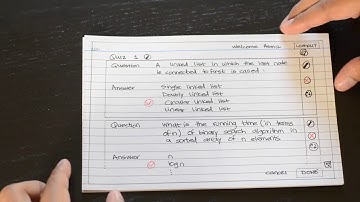 Welcome Admin LOGOUT
Quiz 1
Question A linked list in which the last node
is connected to first is called
Answer Single linked list
Doubly linked list
Circular linked list
Linear linked list
Question What is the running time (in terms
of n) of binary search algorithm in
a sorted array of n elements
Answer n
log n
CANCEL DONE